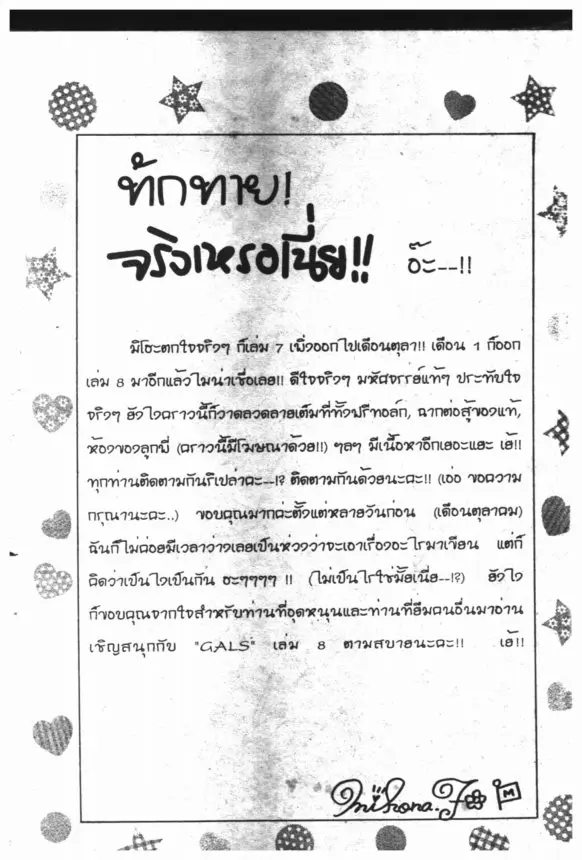 ทักทาย!
จริงเหรอเนี่ย!! อ๊ะ--!!
มิโฮะตกใจจริงๆ ก็เล่ม 7 เพิ่งออกไปเดือนตุลา!! เดือน 1 ก็ออก
เล่ม 8 มาอีกแล้วไม่น่าเชื่อเลย!! ดีใจจริงๆ มหัศจรรย์แท้ๆ ประทับใจ
จริงๆ ยังไงคราวนี้ก็วาดลวดลายเต็มที่ทั้งปรีทอล์ก, ฉากต่อสู้ของแท้,
ห้องของลูกมี่ (คราวนี้มีโฆษณาด้วย!!) ฯลฯ มีเนื้อหาอีกเยอะแยะ เย้!!
ทุกท่านติดตามกันรึเปล่าคะ--!? ติดตามกันด้วยนะคะ!! (เอ่อ ขอความ
กรุณานะคะ..) ขอบคุณมากค่ะตั้งแต่หลายวันก่อน (เดือนตุลาคม)
ฉันก็ไม่ค่อยมีเวลาว่างเลยเป็นห่วงว่าจะเอาเรื่องอะไรมาเขียน แต่ก็
คิดว่าเป็นไงเป็นกัน ฮะๆๆๆ !! (ไม่เป็นไรใช่มั้ยเนี่ย--!?) ยังไง
ก็ขอบคุณจากใจสำหรับท่านที่อุดหนุนและท่านที่ยืมคนอื่นมาอ่าน
เชิญสนุกกับ "GALS" เล่ม 8 ตามสบายนะคะ!! เย้!!
Mihona.F M